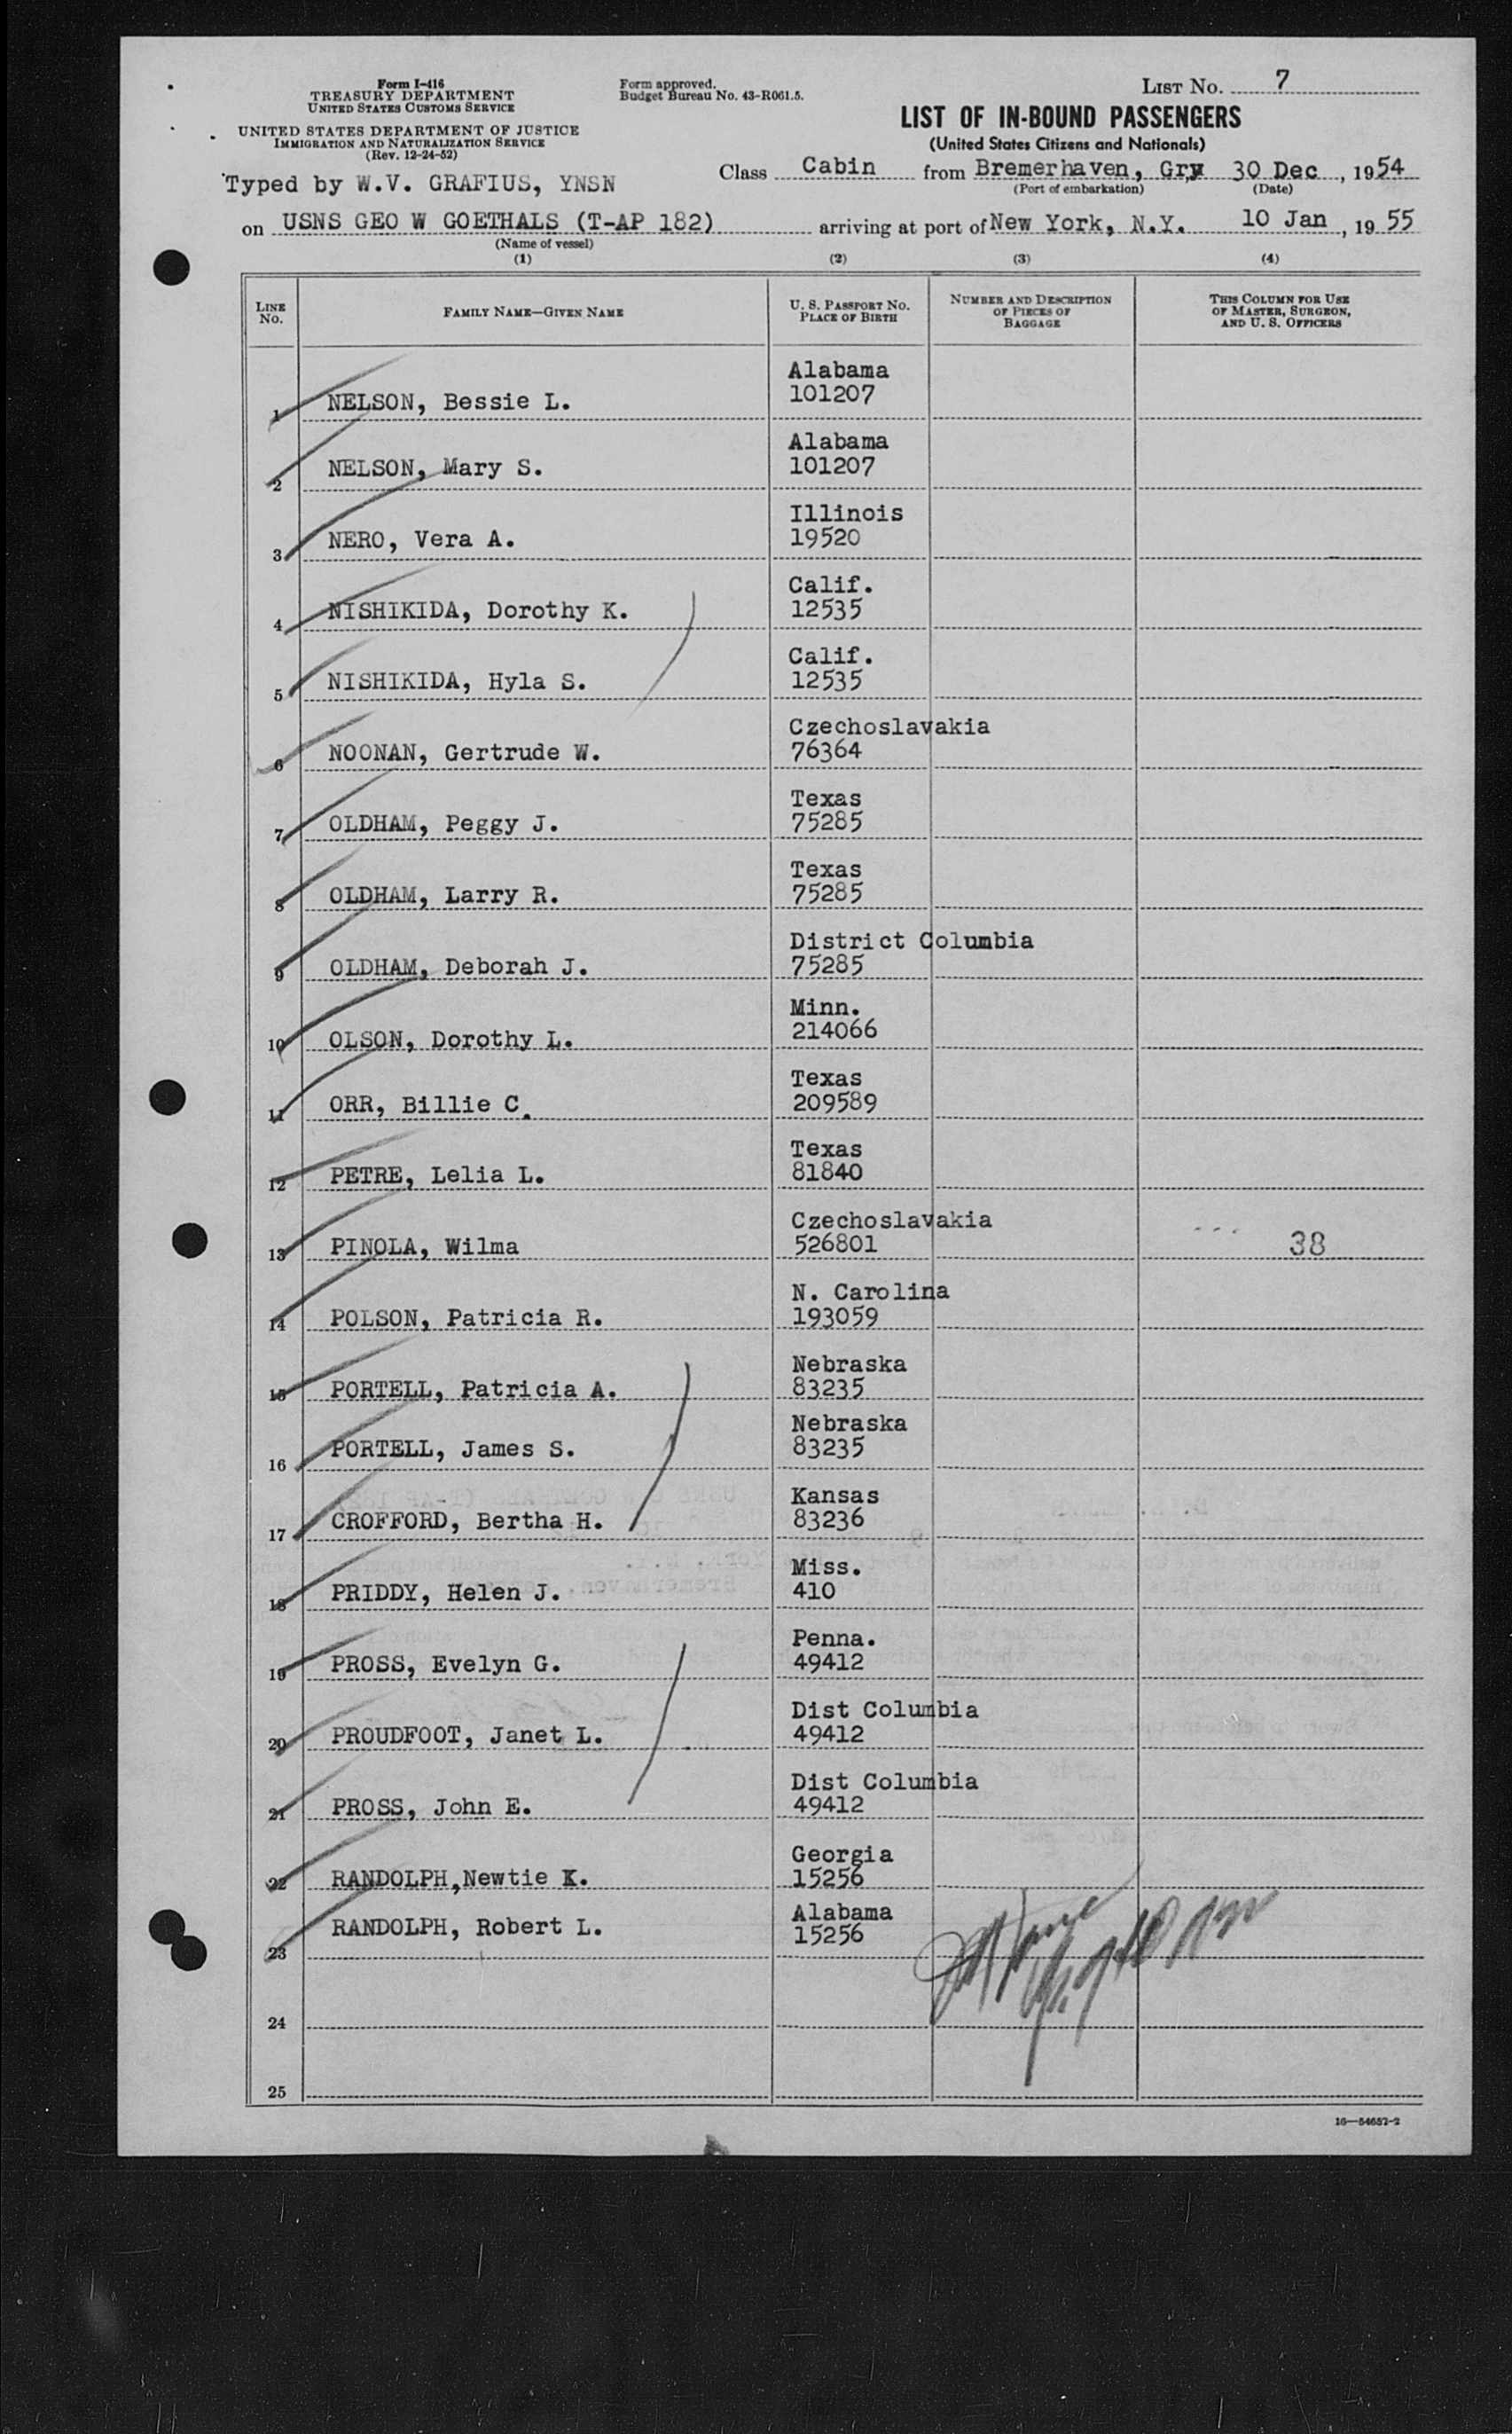 Form I-416
TREASURY DEPARTMENT
UNITED STATES CUSTOMS SERVICE
UNITED STATES DEPARTMENT OF JUSTICE
IMMIGRATION AND NATURALIZATION SERVICE
(Rev. 12-24-52)
Form approved.
Budget Bureau No. 43-R061.5.
LIST No. 7
LIST OF IN-BOUND PASSENGERS
(United States Citizens and Nationals)
Typed by W.V. GRAFIUS, YNSN
Class Cabin from Bremerhaven, Gry 30 Dec , 1954
(Port of embarkation) (Date)
on USNS GEO W GOETHALS (T-AP 182) arriving at port of New York, N.Y. 10 Jan , 19 55
(Name of vessel)
(1) (2) (3) (4)
LINE No. FAMILY NAME—GIVEN NAME U. S. PASSPORT No. PLACE OF BIRTH NUMBER AND DESCRIPTION OF PIECES OF BAGGAGE THIS COLUMN FOR USE OF MASTER, SURGEON, AND U. S. OFFICERS
Alabama
1 NELSON, Bessie L. 101207
Alabama
2 NELSON, Mary S. 101207
Illinois
3 NERO, Vera A. 19520
Calif.
4 NISHIKIDA, Dorothy K. 12535
Calif.
5 NISHIKIDA, Hyla S. 12535
Czechoslavakia
6 NOONAN, Gertrude W. 76364
Texas
7 OLDHAM, Peggy J. 75285
Texas
8 OLDHAM, Larry R. 75285
District Columbia
9 OLDHAM, Deborah J. 75285
Minn.
10 OLSON, Dorothy L. 214066
Texas
11 ORR, Billie C. 209589
Texas
12 PETRE, Lelia L. 81840
Czechoslavakia
13 PINOLA, Wilma 526801 38
N. Carolina
14 POLSON, Patricia R. 193059
Nebraska
15 PORTELL, Patricia A. 83235
Nebraska
16 PORTELL, James S. 83235
Kansas
17 CROFFORD, Bertha H. 83236
Miss.
18 PRIDDY, Helen J. 410
Penna.
19 PROSS, Evelyn G. 49412
Dist Columbia
20 PROUDFOOT, Janet L. 49412
Dist Columbia
21 PROSS, John E. 49412
Georgia
22 RANDOLPH,Newtie K. 15256
Alabama
23 RANDOLPH, Robert L. 15256
24
25
16—54657-2